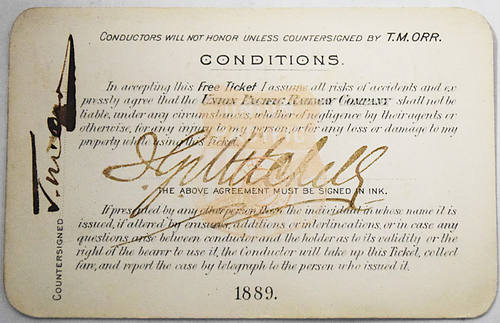 CONDUCTORS WILL NOT HONOR UNLESS COUNTERSIGNED BY T.M. ORR.
CONDITIONS.
In accepting this Free Ticket I assume all risks of accidents and ex
pressly agree that the UNION PACIFIC RAILWAY COMPANY shall not be
liable, under any circumstances, whether of negligence by their agents or
otherwise, for any injury to my person, or for any loss or damage to my
property while using this Ticket.
THE ABOVE AGREEMENT MUST BE SIGNED IN INK.
If presented by any other person than the individual in whose name it is
issued, if altered by erasures, additions or interlineations, or in case any
questions arise between conductor and the holder as to its validity or the
right of the bearer to use it, the Conductor will take up this Ticket, collect
fare, and report the case by telegraph to the person who issued it.
1889.
COUNTERSIGNED